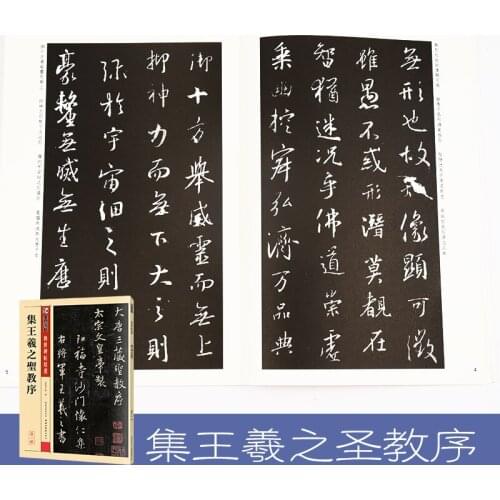 無形也故知像顯可徵
雖愚不惑形潛莫覩在
智猶迷況乎佛道崇虛
乘幽控寂弘濟万品典
御十方舉威靈而無上
抑神力而無下大之則
弥於宇宙細之則
豪釐無滅無生歷
大唐三藏聖教序
太宗文皇帝製
弘福寺沙門懷仁集
右將軍王羲之書
集王羲之聖教序
集王羲之圣教序